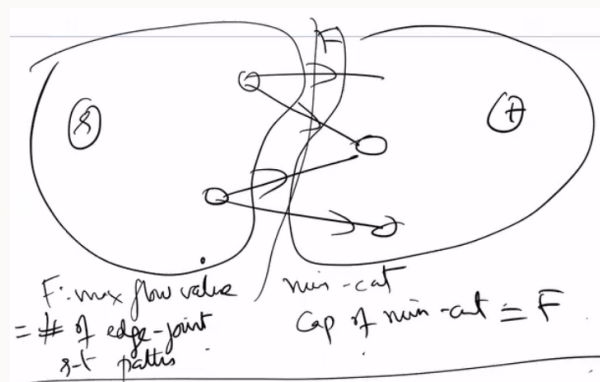 F
s
t
F: max flow value
= # of edge-joint
s-t paths
min-cut
Cap of min-cut = F